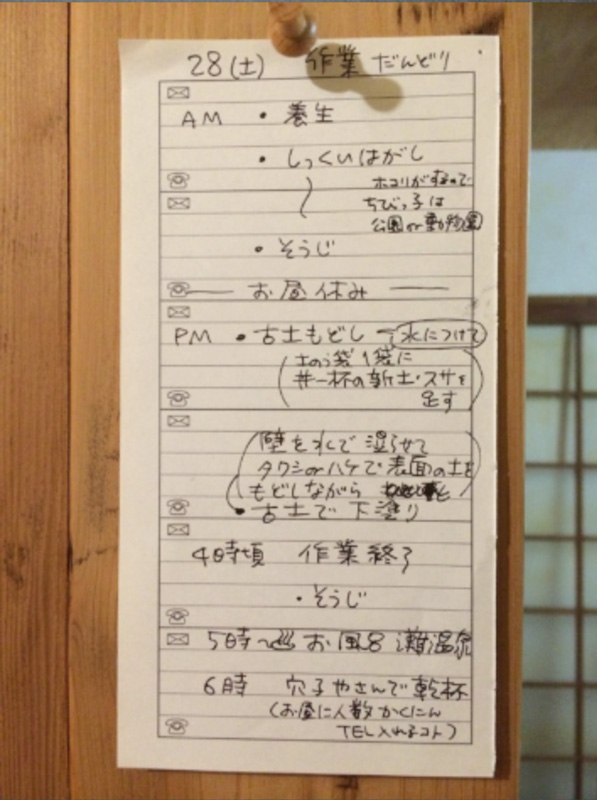 28(土) 作業 だんどり
AM ・養生
・しっくいはがし
ホコリがすごいので
ちびっ子は
公園or動物園
・そうじ
お昼休み
PM ・古土もどし 水につけて
(土のう袋1袋に
#一杯の新土・スサを
足す)
(壁を水で湿らせて
タワシorハケで表面の土を
もどしながら
・古土で下塗り
4時頃 作業終了
・そうじ
5時〜♨ お風呂 灘温泉
6時 穴子やさんで乾杯
(お昼に人数かくにん
TEL入れるコト)